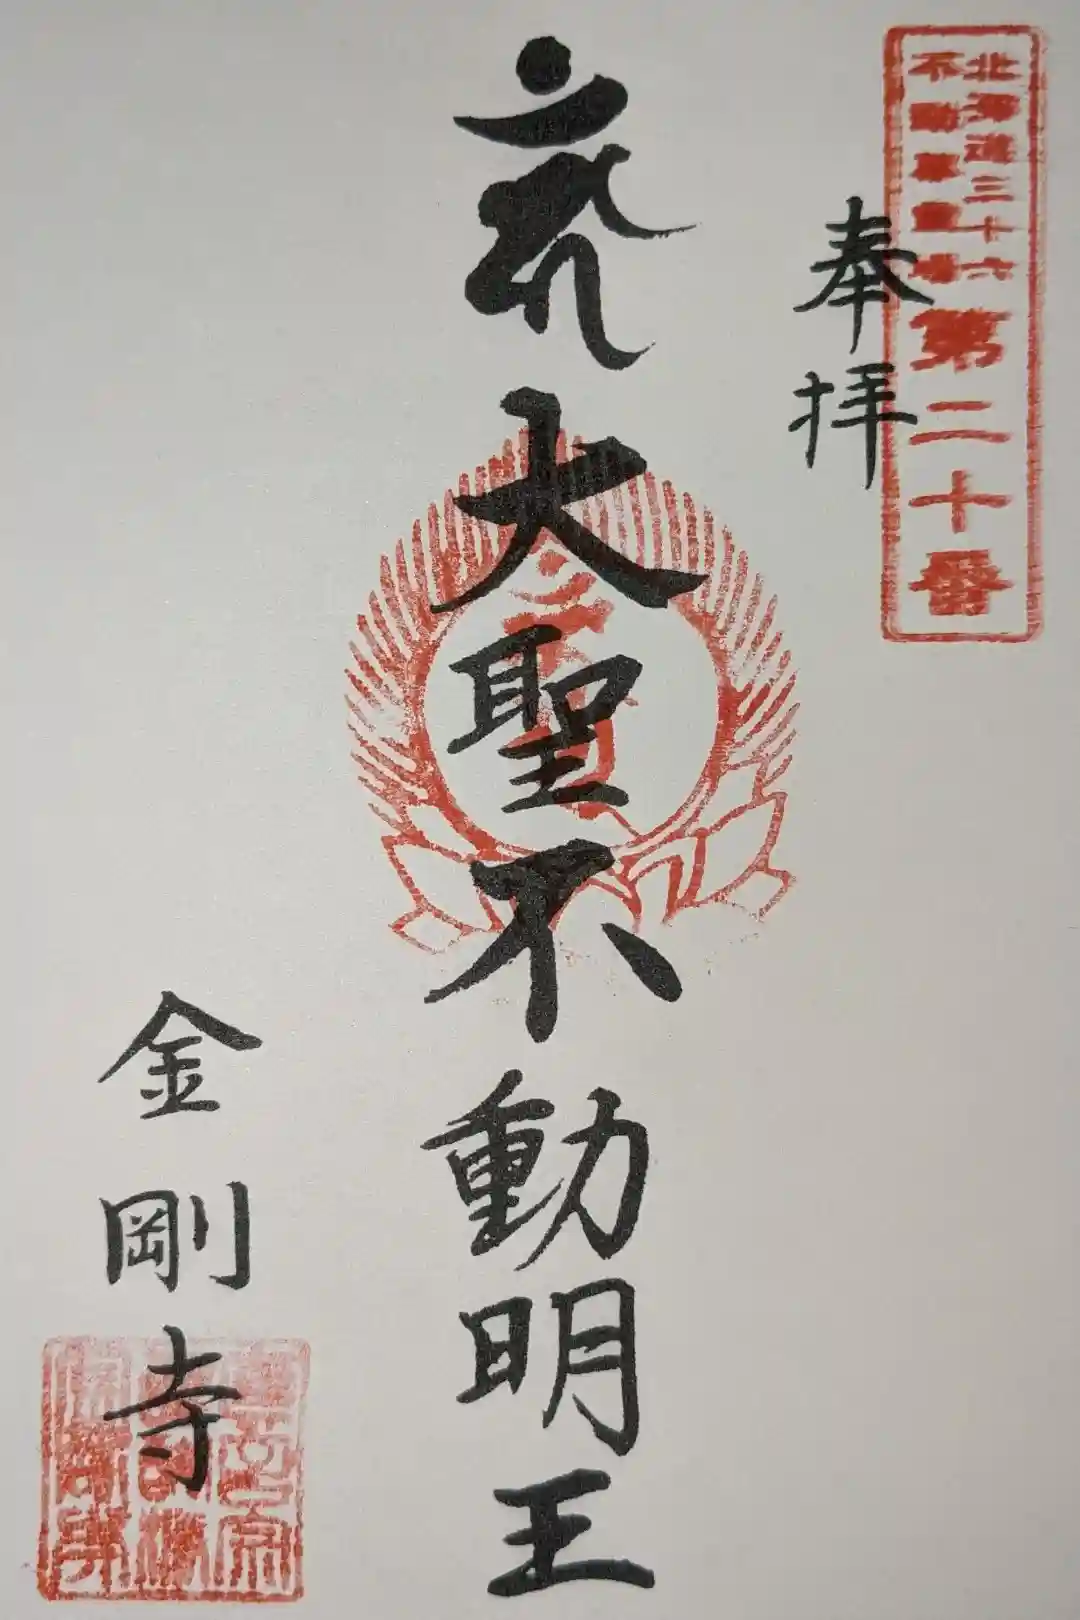 北海道三十六
不動尊霊場
第二十番
奉拝
大聖不動明王
金剛寺